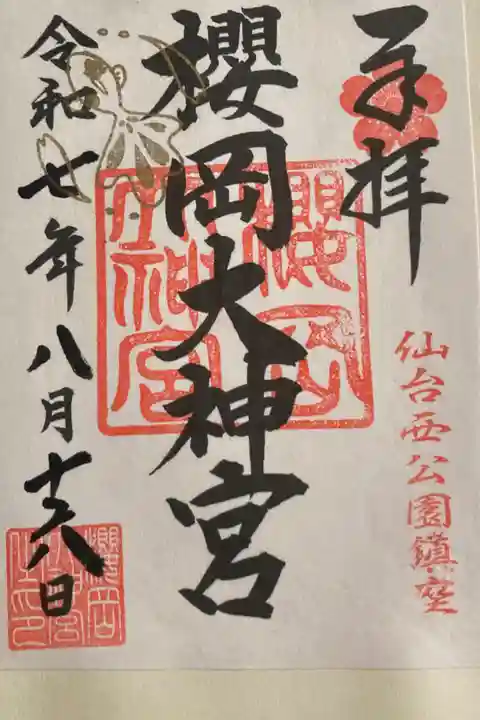 奉拝
仙台西公園鎮座
櫻岡大神宮
櫻岡大神宮
令和七年八月十六日
櫻岡大神宮之印